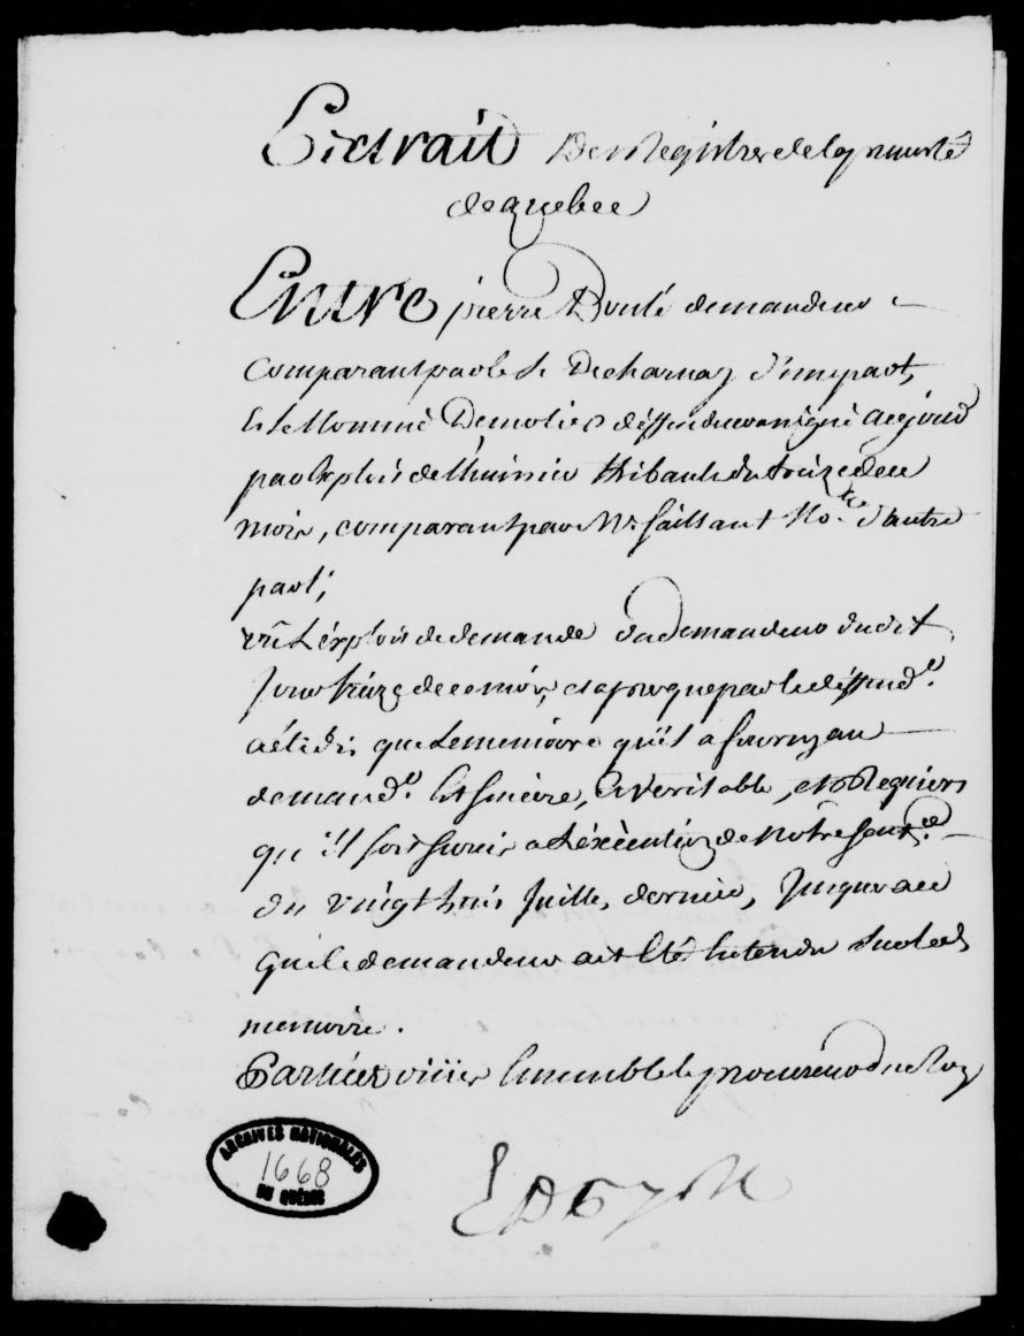 Extrait Des Registres de la prevosté
de quebec
Entre pierre Bouté demandeur
Comparant par le Sr Decharnay d'une part,
et le Nommé Demolier déffendeur assigné a ce jour
par Exploit de l'huissier thibault du treize de ce
mois, comparant par Me Saillant No.re d'autre
part;
vû L'éxploit de demande du demandeur dudit
Jour treize de ce mois, et apres que par le déffend.r
a été dit que Le memoire qu'il a fourny au
demand.r Est Sincere, & veritable, et Requiers
qu'il soit Sursis a L'éxécution de Notre Sent.ce
du vingt trois Juillet dernier, Jusqu'a ce
que le demandeur ait Eté Entendu Sur led.
memoire.
Parties oüies Ensemble le procureur du Roy
ARCHIVES NATIONALES
1668
DU QUÉBEC